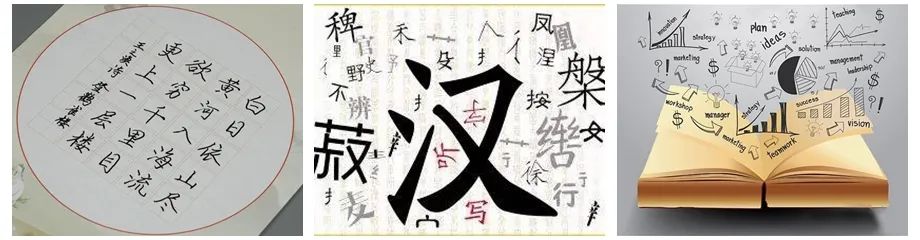 白日依山尽
黄河入海流
欲穷千里目
更上一层楼
王之涣诗 登鹳雀楼
稗
官
禾
凤
凰
里
野
史
涅
槃
不
辨
按
汉
菽
麦
听
写
徐
行
辔
行
plan
teaching
innovation
strategy
ideas
solution
marketing
management
leadership
workshop
manager
strategy
success
marketing
teamwork
vision